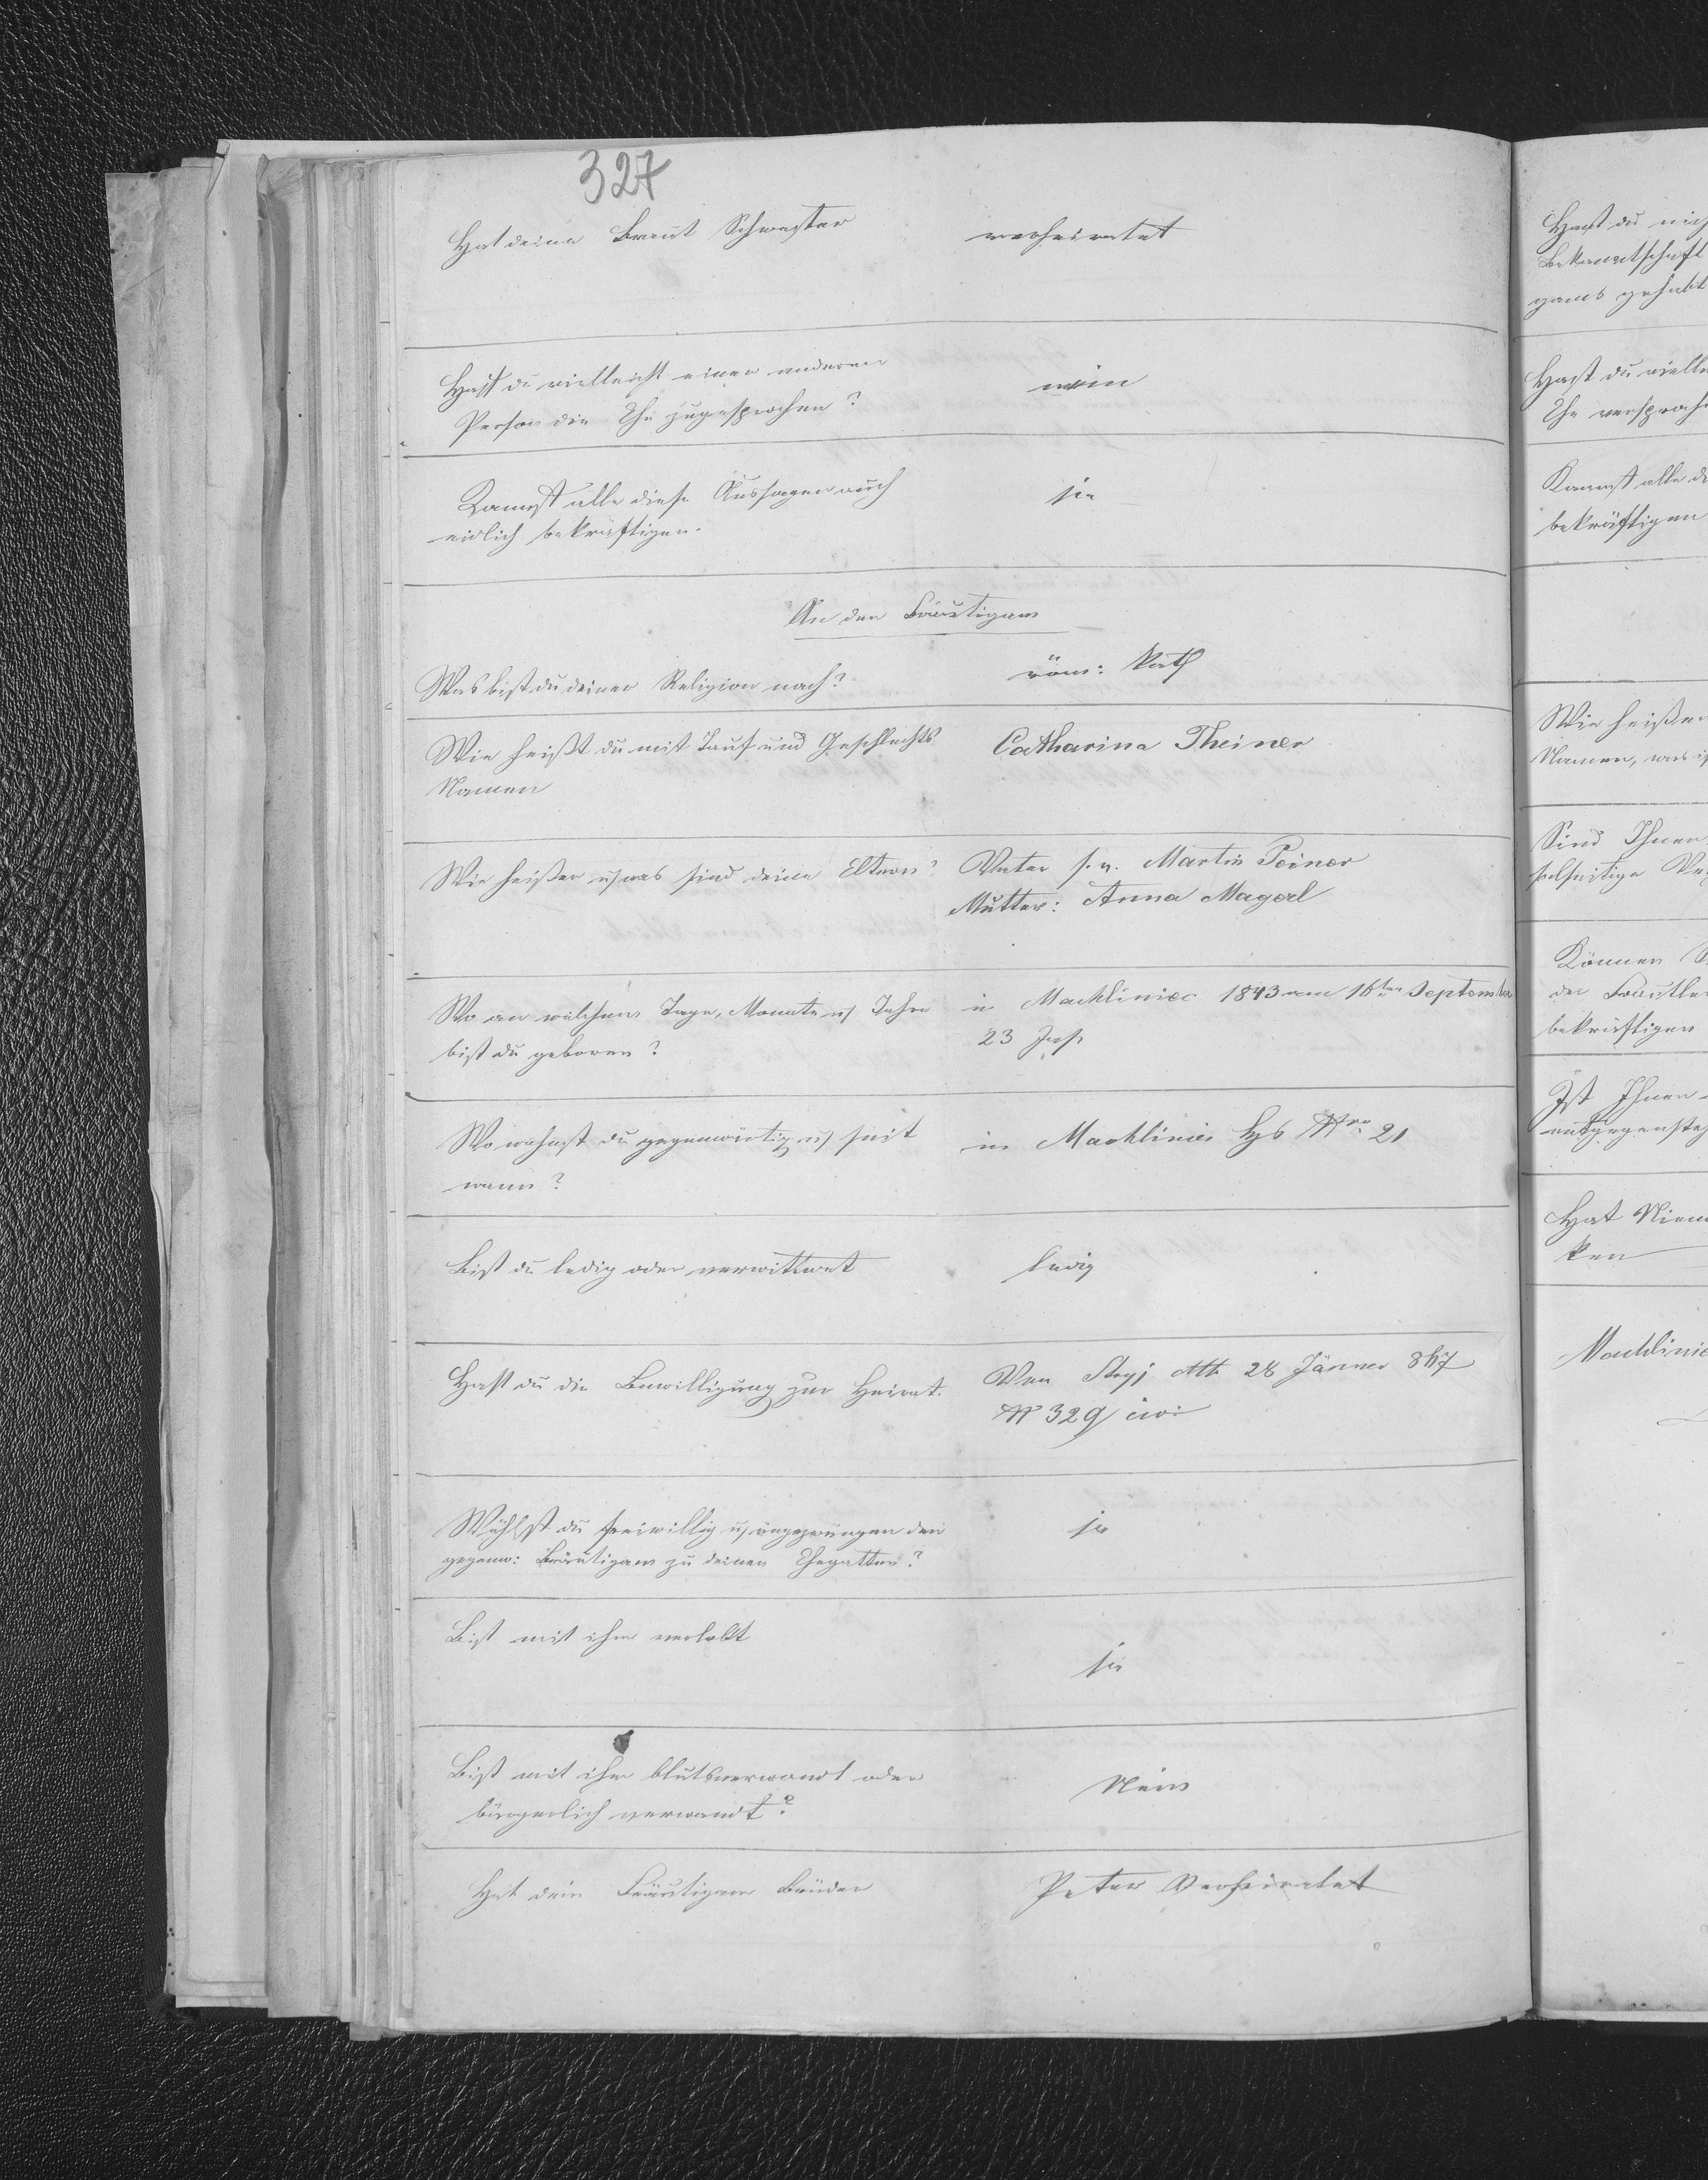 327
Hat deine Braut Schwester verheiratet
Hast du vielleicht einer anderen nein
Person die Ehe zugesprochen?
Kannst alle diese Aussagen auch ja
eidlich bekräftigen.
An den Bräutigam
Was bist du deiner Religion nach? röm: Kath
Wie heißt du mit Tauf und Geschlechts Catharina Theiner
Namen
Wie heißen u was sind deine Eltern? Vater Martin Peiner
Mutter: Anna Magerl
Wo an welchem Tage, Monate u Jahre in Machliniec 1843 am 16ten September
bist du geboren? 23 Jah
Wo wohnst du gegenwärtig u seit in Machliniec Hs Nro 21
wann?
Bist du ledig oder verwittwet ledig
Hast du die Bewilligung zur Heirat. Von Stryj dtto 28 Jänner 867
N 329
Wählst du freiwillig u ungezwungen den ja
gegenw: Bräutigam zu deinen Ehegatten?
Bist mit ihm verlobt
ja
Bist mit ihm blutsverwandt oder Nein
bürgerlich verwandt?
Hat dein Bräutigam Brüder Peter Verheiratet
Hast du nich
Bekanntschaft
gams gehabt
Hast du vielle
Ehe versproche
Kannst alle d
bekräftigen
Wie heißen
Namen, was is
Sind Ihnen
Können S
der Brautle
bekräftigen
Ist Ihnen
entgegensteh
Hat Niem
ken
Machlinie